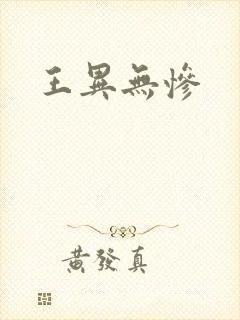 王異無慘
黃發真